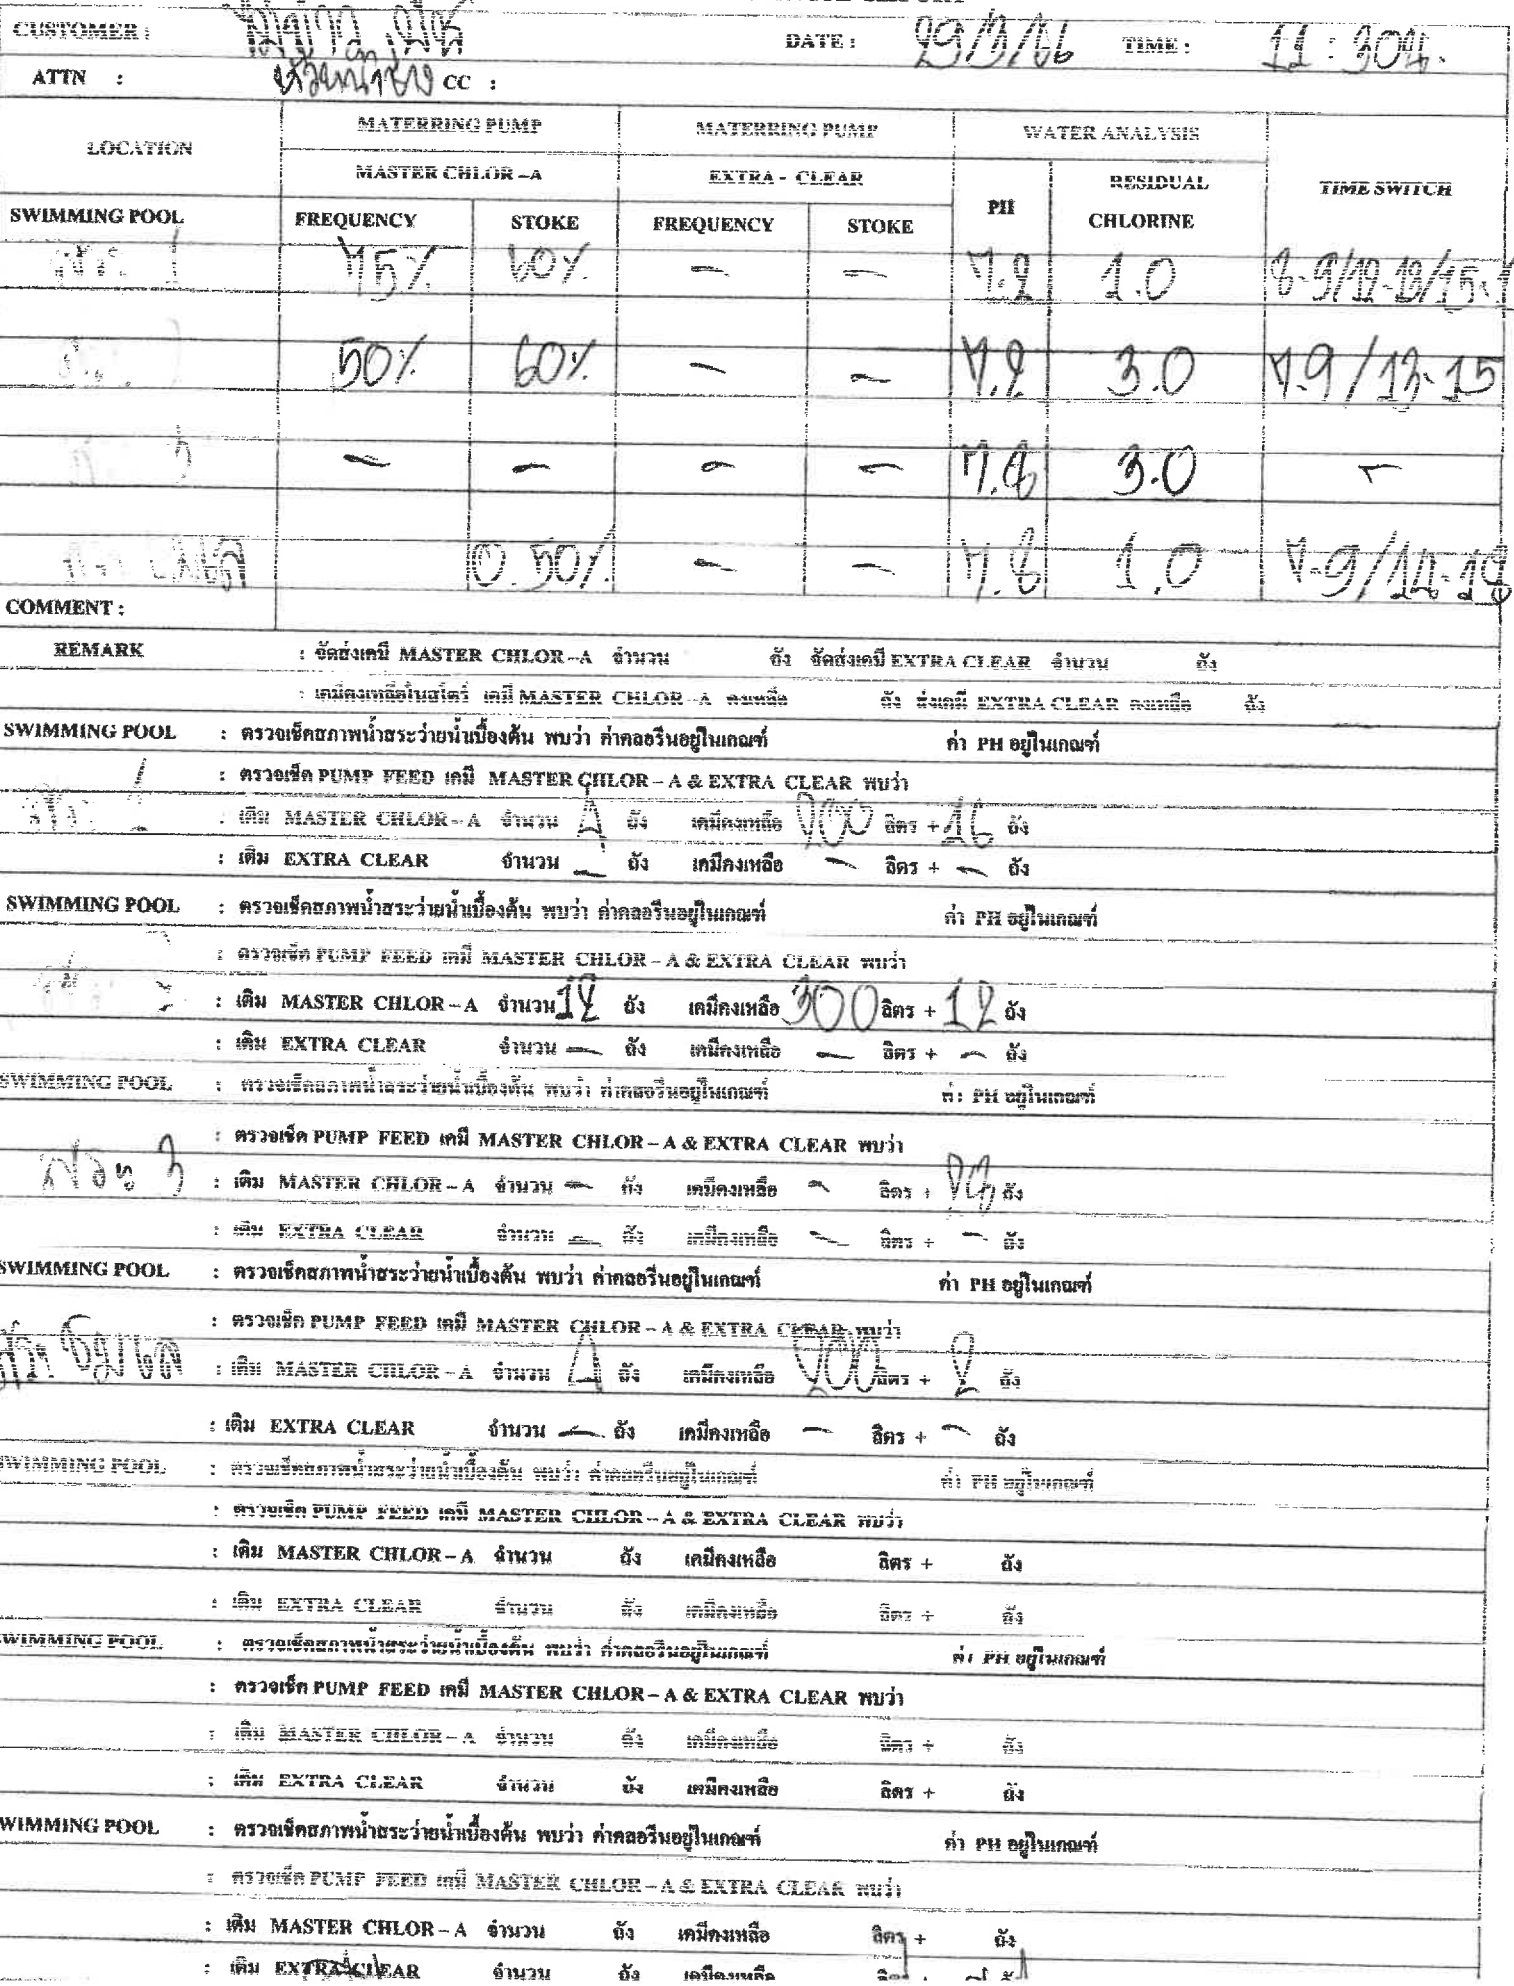 CUSTOMER : DATE : TIME : 11 : 30น.
ATTN : หัวหน้าช่าง CC :
LOCATION MATERRING PUMP MATERRING PUMP WATER ANALYSIS TIME SWITCH
MASTER CHLOR –A EXTRA - CLEAR PH RESIDUAL CHLORINE
SWIMMING POOL FREQUENCY STOKE FREQUENCY STOKE
สระ 1 75% 60% – – 7.2 1.0
50% 60% – – 7.2 3.0 7-9 / 13-15
3 – – – – 7.8 3.0 –
50% – – 7.8 1.0
COMMENT :
REMARK : จัดส่งเคมี MASTER CHLOR–A จำนวน ถัง จัดส่งเคมี EXTRA CLEAR จำนวน ถัง
: เคมีคงเหลือในสโตร์ เคมี MASTER CHLOR–A คงเหลือ ถัง ส่งเคมี EXTRA CLEAR คงเหลือ ถัง
SWIMMING POOL : ตรวจเช็คสภาพน้ำสระว่ายน้ำเบื้องต้น พบว่า ค่าคลอรีนอยู่ในเกณฑ์ ค่า PH อยู่ในเกณฑ์
: ตรวจเช็ค PUMP FEED เคมี MASTER CHLOR – A & EXTRA CLEAR พบว่า
สระ 1 : เติม MASTER CHLOR–A จำนวน 4 ถัง เคมีคงเหลือ 200 ลิตร + 16 ถัง
: เติม EXTRA CLEAR จำนวน – ถัง เคมีคงเหลือ – ลิตร + – ถัง
SWIMMING POOL : ตรวจเช็คสภาพน้ำสระว่ายน้ำเบื้องต้น พบว่า ค่าคลอรีนอยู่ในเกณฑ์ ค่า PH อยู่ในเกณฑ์
: ตรวจเช็ค PUMP FEED เคมี MASTER CHLOR – A & EXTRA CLEAR พบว่า
: เติม MASTER CHLOR–A จำนวน 12 ถัง เคมีคงเหลือ 300 ลิตร + 12 ถัง
: เติม EXTRA CLEAR จำนวน – ถัง เคมีคงเหลือ – ลิตร + – ถัง
SWIMMING POOL : ตรวจเช็คสภาพน้ำสระว่ายน้ำเบื้องต้น พบว่า ค่าคลอรีนอยู่ในเกณฑ์ ค่า PH อยู่ในเกณฑ์
: ตรวจเช็ค PUMP FEED เคมี MASTER CHLOR – A & EXTRA CLEAR พบว่า
สระ 3 : เติม MASTER CHLOR–A จำนวน – ถัง เคมีคงเหลือ – ลิตร + ถัง
: เติม EXTRA CLEAR จำนวน – ถัง เคมีคงเหลือ – ลิตร + – ถัง
SWIMMING POOL : ตรวจเช็คสภาพน้ำสระว่ายน้ำเบื้องต้น พบว่า ค่าคลอรีนอยู่ในเกณฑ์ ค่า PH อยู่ในเกณฑ์
: ตรวจเช็ค PUMP FEED เคมี MASTER CHLOR – A & EXTRA CLEAR พบว่า
: เติม MASTER CHLOR–A จำนวน 4 ถัง เคมีคงเหลือ 200 ลิตร + 2 ถัง
: เติม EXTRA CLEAR จำนวน – ถัง เคมีคงเหลือ – ลิตร + – ถัง
SWIMMING POOL : ตรวจเช็คสภาพน้ำสระว่ายน้ำเบื้องต้น พบว่า ค่าคลอรีนอยู่ในเกณฑ์ ค่า PH อยู่ในเกณฑ์
: ตรวจเช็ค PUMP FEED เคมี MASTER CHLOR – A & EXTRA CLEAR พบว่า
: เติม MASTER CHLOR–A จำนวน ถัง เคมีคงเหลือ ลิตร + ถัง
: เติม EXTRA CLEAR จำนวน ถัง เคมีคงเหลือ ลิตร + ถัง
SWIMMING POOL : ตรวจเช็คสภาพน้ำสระว่ายน้ำเบื้องต้น พบว่า ค่าคลอรีนอยู่ในเกณฑ์ ค่า PH อยู่ในเกณฑ์
: ตรวจเช็ค PUMP FEED เคมี MASTER CHLOR – A & EXTRA CLEAR พบว่า
: เติม MASTER CHLOR–A จำนวน ถัง เคมีคงเหลือ ลิตร + ถัง
: เติม EXTRA CLEAR จำนวน ถัง เคมีคงเหลือ ลิตร + ถัง
SWIMMING POOL : ตรวจเช็คสภาพน้ำสระว่ายน้ำเบื้องต้น พบว่า ค่าคลอรีนอยู่ในเกณฑ์ ค่า PH อยู่ในเกณฑ์
: ตรวจเช็ค PUMP FEED เคมี MASTER CHLOR – A & EXTRA CLEAR พบว่า
: เติม MASTER CHLOR–A จำนวน ถัง เคมีคงเหลือ ลิตร + ถัง
: เติม EXTRA CLEAR จำนวน ถัง เคมีคงเหลือ ลิตร + ถัง